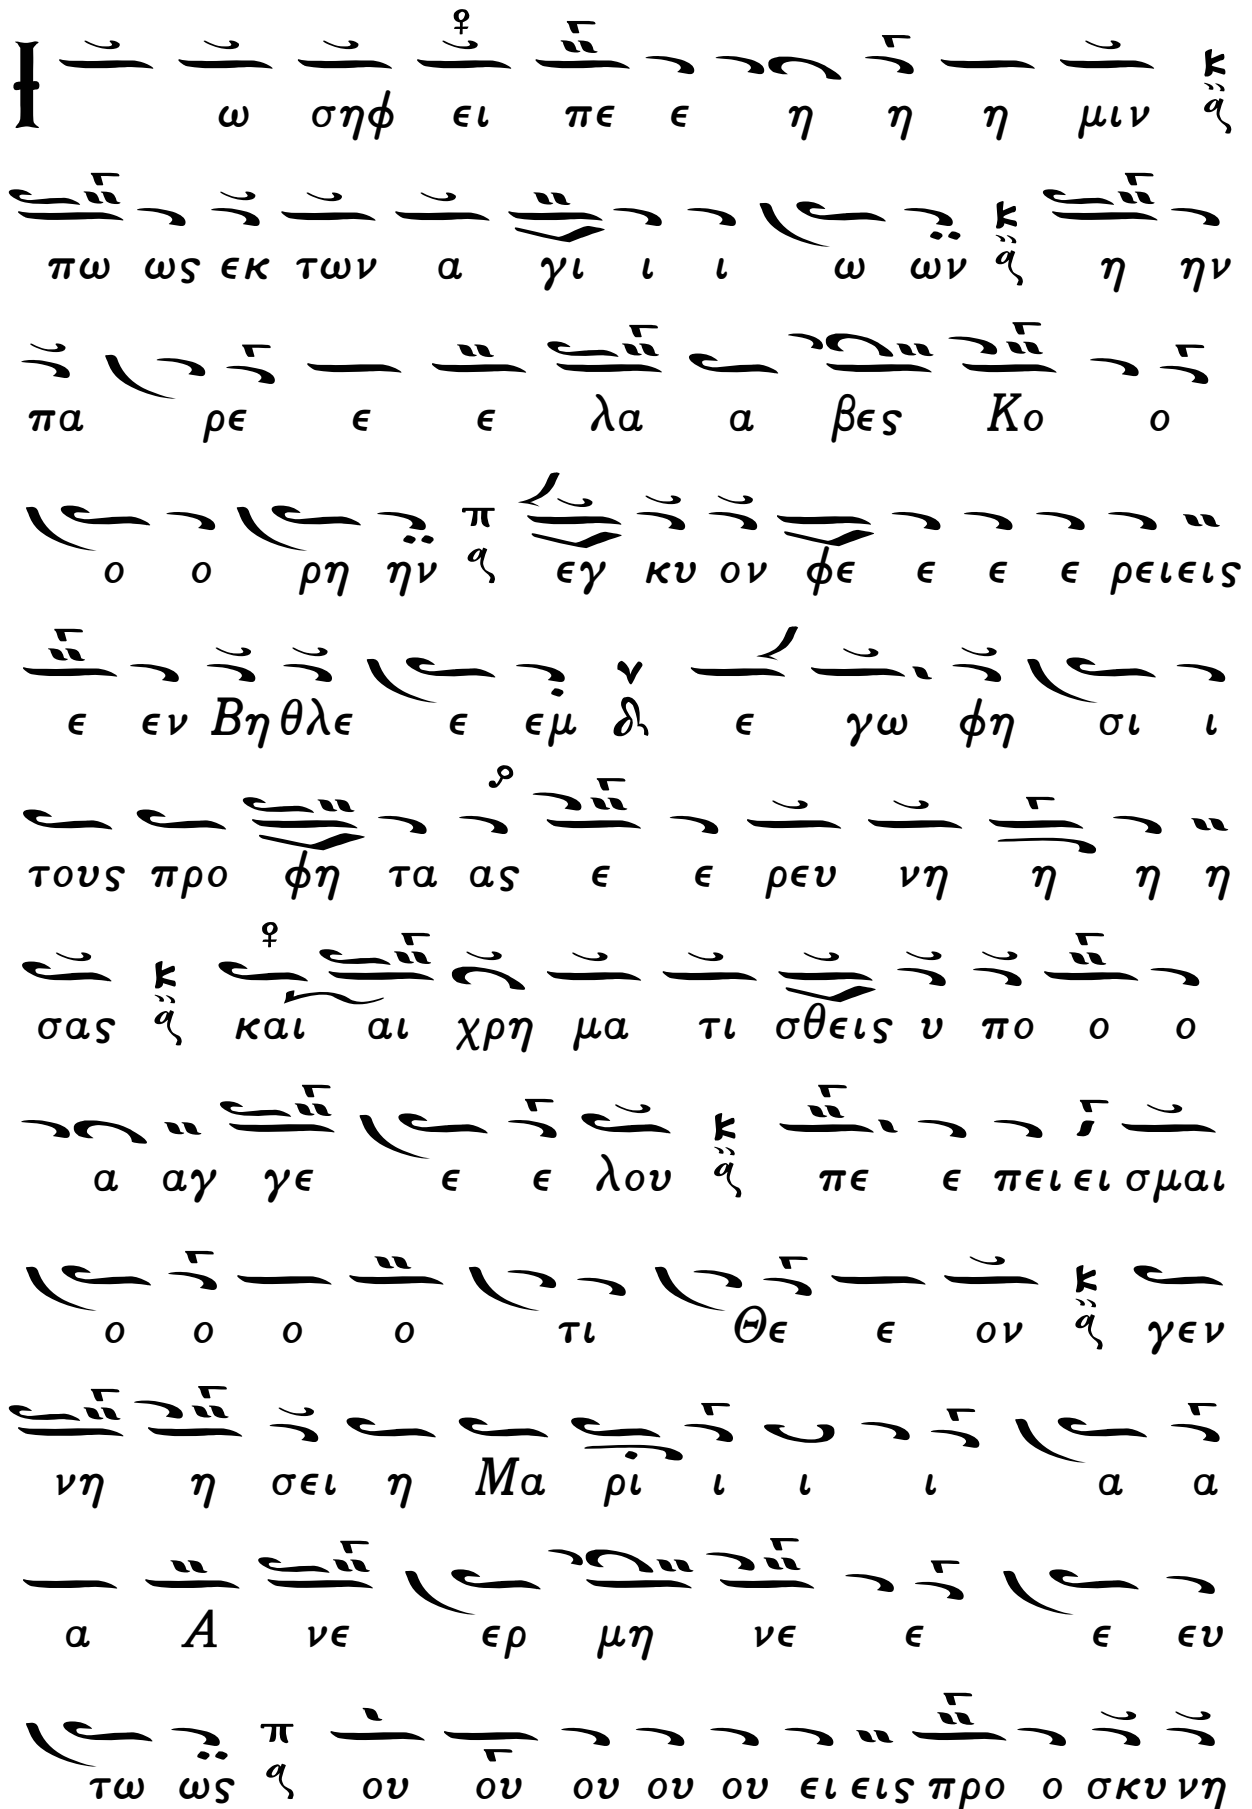 Ι ω σηφ ει πε ε η η η μιν
πω ως εκ των α γι ι ι ω ων η ην
πα ρε ε ε λα α βες Κο ο
ο ο ρη ην π εγ κυ ον φε ε ε ε ρειεις
ε εν Βη θλε ε εμ ε γω φη σι ι
τους προ φη τα ας ε ε ρευ νη η η η
σας και αι χρη μα τι σθεις υ πο ο ο
α αγ γε ε ε λου πε ε πει ει σμαι
ο ο ο ο τι Θε ε ον γεν
νη η σει η Μα ρι ι ι ι α α
α Α νε ερ μη νε ε ε ευ
τω ως π ου ου ου ου ου ει εις προ ο σκυ νη